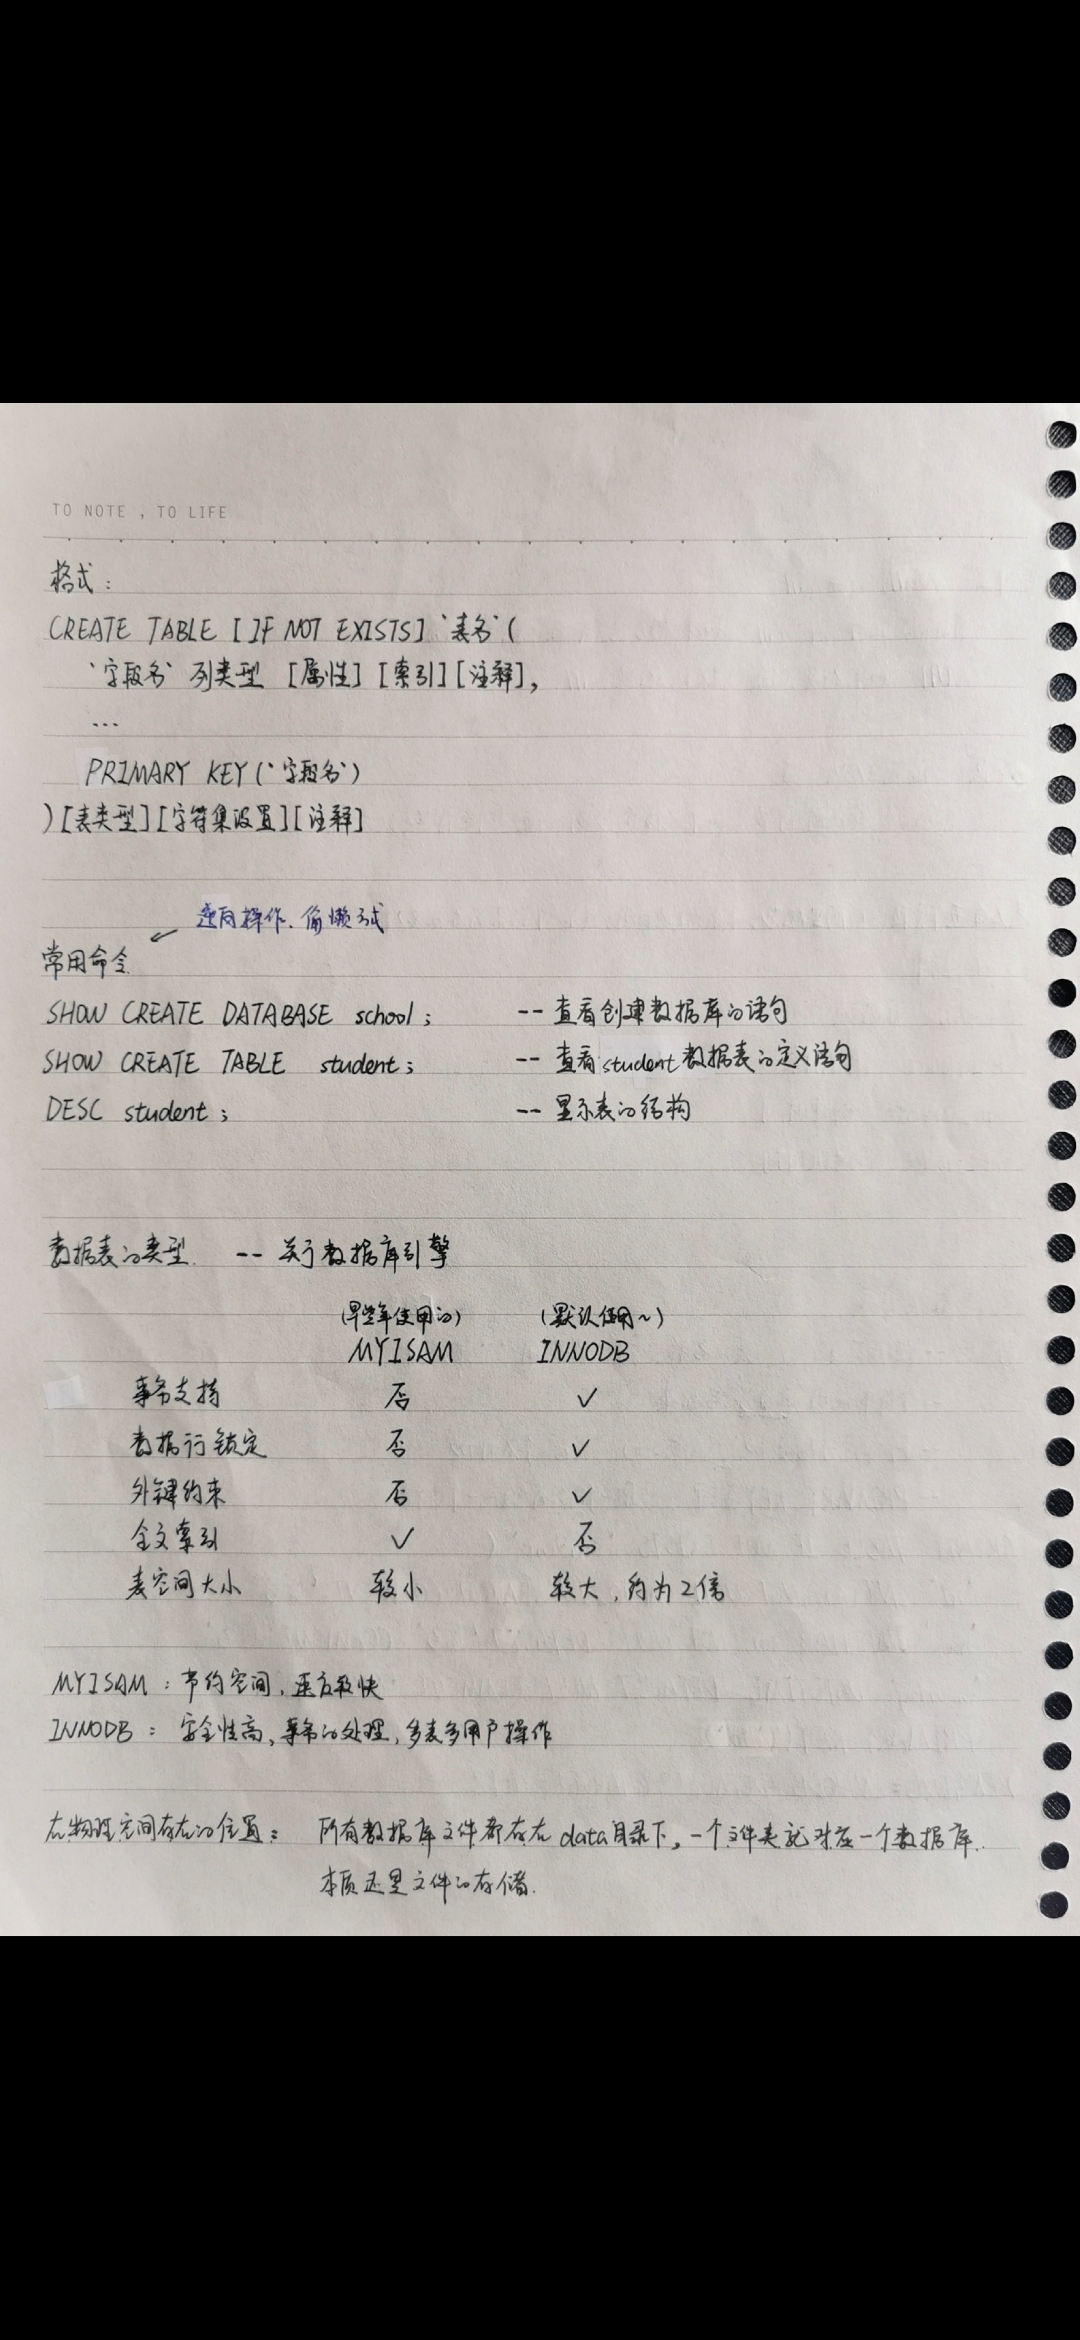 TO NOTE , TO LIFE
格式：
CREATE TABLE [IF NOT EXISTS] `表名` (
`字段名` 列类型 [属性] [索引] [注释],
...
PRIMARY KEY (`字段名`)
) [表类型] [字符集设置] [注释]
逆向操作、偷懒方式
常用命令
SHOW CREATE DATABASE school;  -- 查看创建数据库的语句
SHOW CREATE TABLE student;  -- 查看student数据表的定义语句
DESC student;  -- 显示表的结构
数据表的类型  -- 关于数据库引擎
(早些年使用的)  (默认使用~)
MYISAM  INNODB
事务支持  否  ✓
数据行锁定  否  ✓
外键约束  否  ✓
全文索引  ✓  否
表空间大小  较小  较大，约为2倍
MYISAM：节约空间，速度较快
INNODB：安全性高，事务的处理，多表多用户操作
在物理空间存在的位置：所有数据库文件都存在data目录下，一个文件夹就对应一个数据库.
本质还是文件的存储.